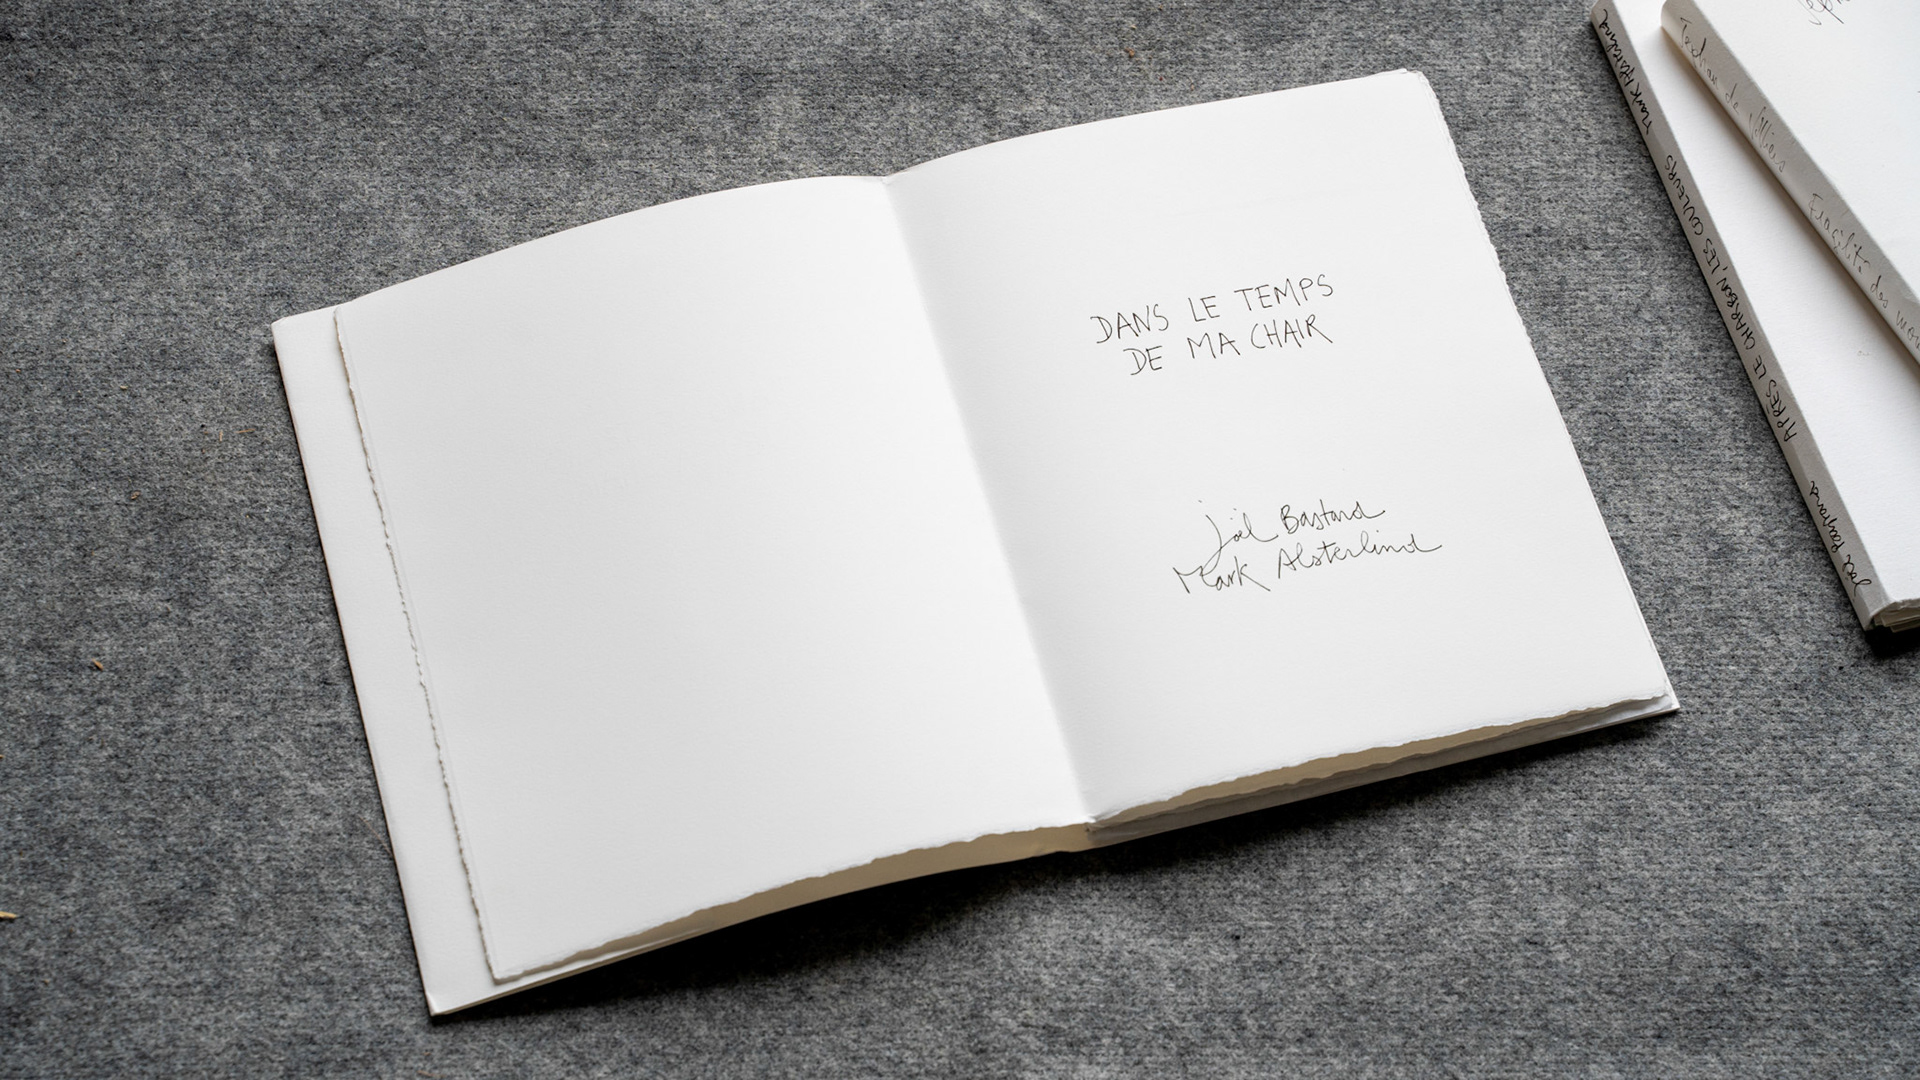 DANS LE TEMPS
DE MA CHAIR
Joël Bastard
Mark Alsterlind
Mark Alsterlind
APRÈS LE CHARBON, LES COULEURS
Joël
de
Fragilité des